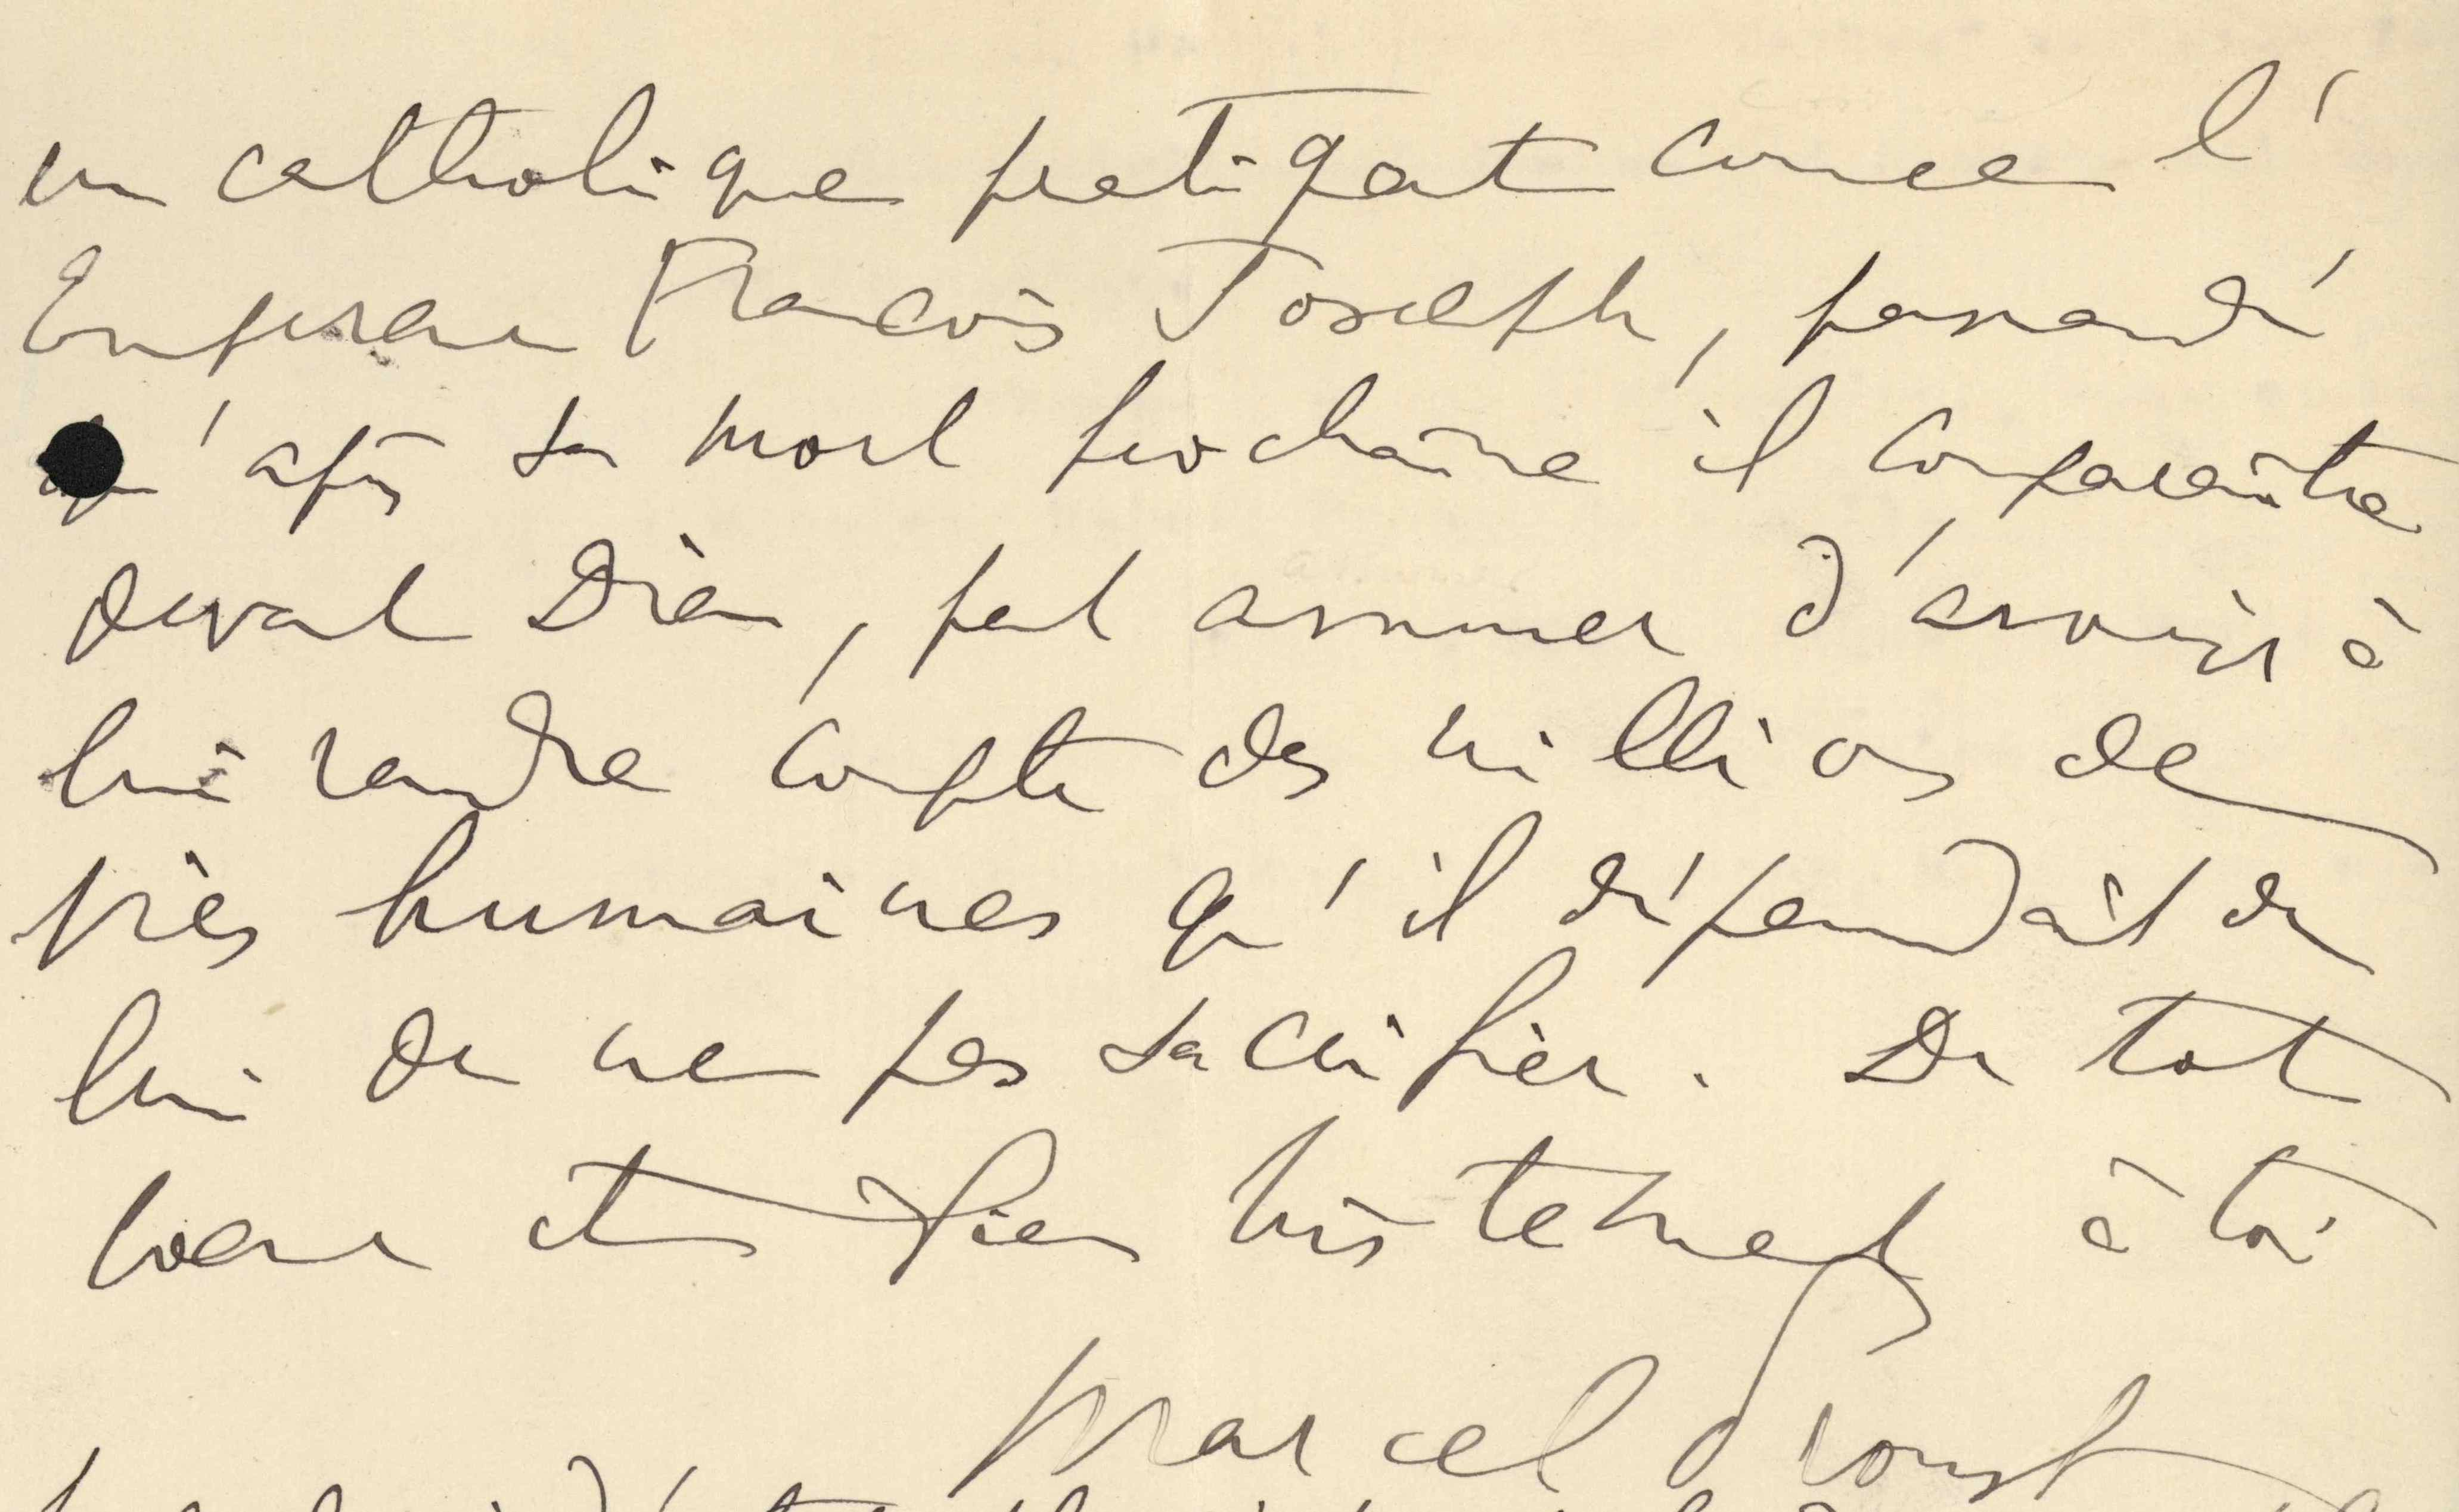 un catholique pratiquant comme l'
Empereur François Joseph, persuadé
qu'après sa mort prochaine il comparaîtra
devant Dieu, peut assumer d'avoir à
lui rendre compte des millions de
vies humaines qu'il dépendait de
lui de ne pas sacrifier. De tout
coeur et bien tristement à toi
Marcel Proust